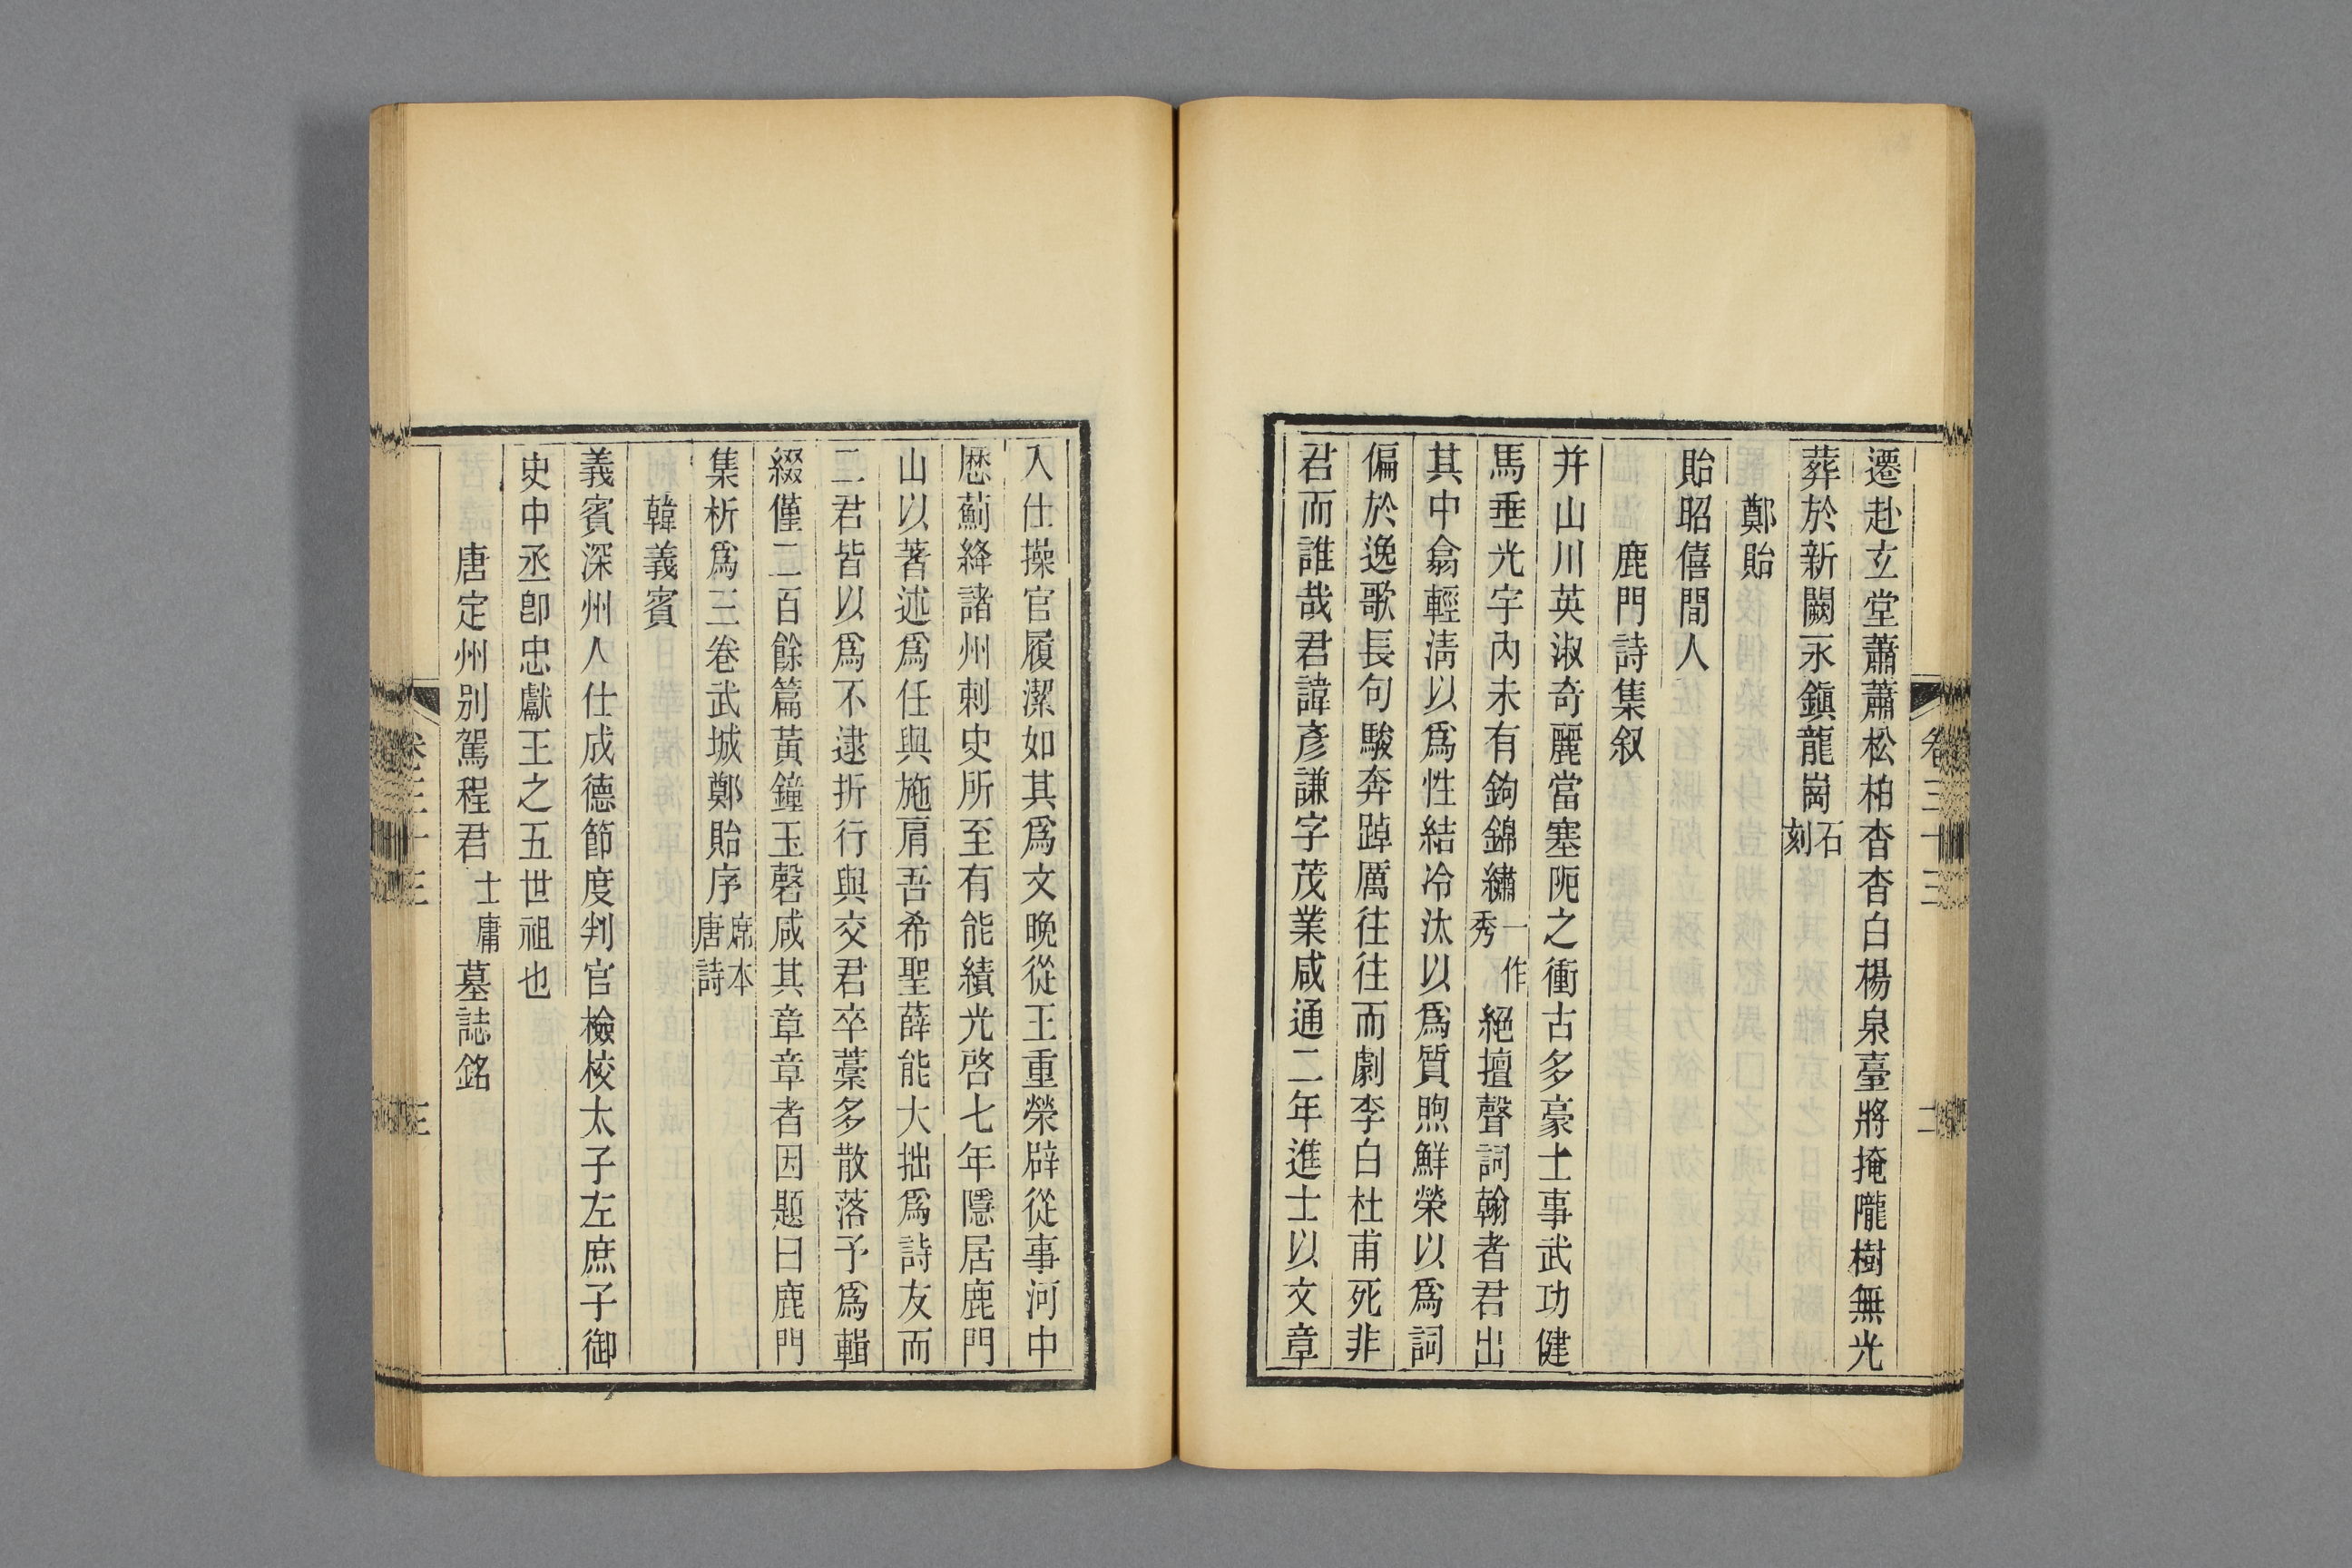 卷三十三
二
遷赴玄堂蕭蕭松柏杳杳白楊泉臺將掩隴樹無光
葬於新闕永鎭龍崗石刻
鄭貽
貽昭僖間人
鹿門詩集叙
并山川英淑奇麗當塞阨之衝古多豪士事武功健
馬垂光宇內未有鉤錦繡一作秀絕擅聲詞翰者君出
其中翕輕淸以爲性結冷汰以爲質煦鮮榮以爲詞
偏於逸歌長句駿奔踔厲往往而劇李白杜甫死非
君而誰哉君諱彥謙字茂業咸通二年進士以文章
入仕操官履潔如其爲文晚從王重榮辟從事河中
歷薊絳諸州刺史所至有能績光啓七年隱居鹿門
山以著述爲任與施肩吾希聖薛能大拙爲詩友而
二君皆以爲不逮折行與交君卒藁多散落予爲輯
綴僅二百餘篇黃鐘玉磬咸其章章者因題曰鹿門
集析爲三卷武城鄭貽序席本唐詩
韓義賓
義賓深州人仕成德節度判官檢校太子左庶子御
史中丞卽忠獻王之五世祖也
唐定州别駕程君士庸墓誌銘
卷三十三
三